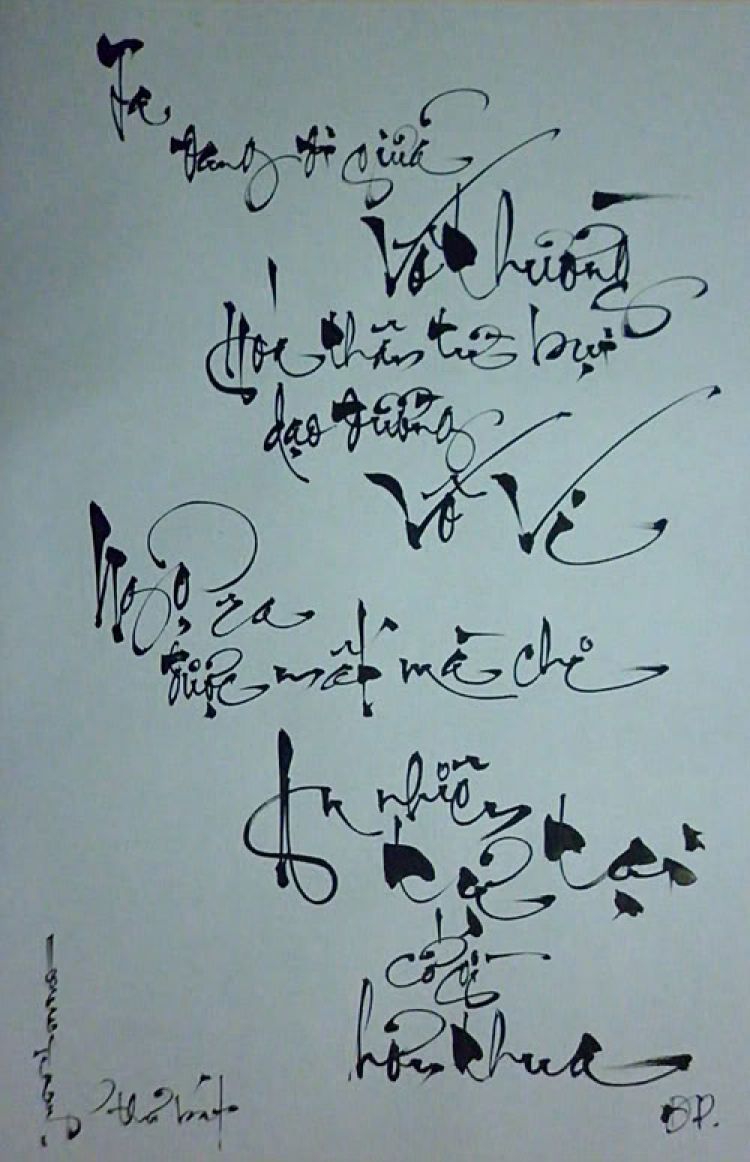 Ta
đang đi giữa
Vô thường
Hóa thân từ bụi
dạo đường
Vô Vi
Ngộ ra
được mất mà chi
An nhiên
tự tại
có gì
hơn thua
thơ bát
Đ.P.